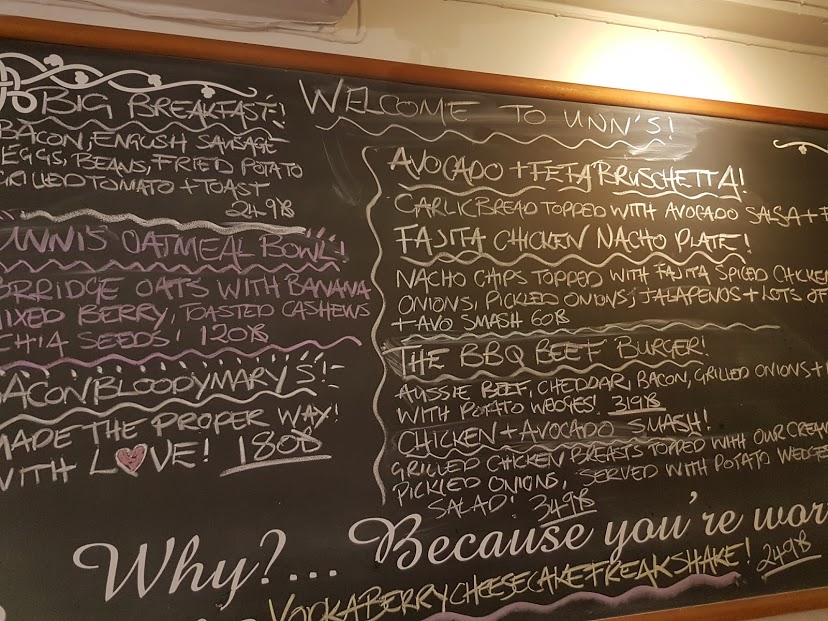 BIG BREAKFAST!
BACON, ENGLISH SAUSAGE
EGGS, BEANS, FRIED POTATO
GRILLED TOMATO + TOAST
249฿
UNNI'S OATMEAL BOWL!
PORRIDGE OATS WITH BANANA
MIXED BERRY, TOASTED CASHEWS
CHIA SEEDS! 120฿
BACON BLOODY MARY'S!
MADE THE PROPER WAY!
WITH LOVE! 180฿
WELCOME TO UNN'S!
AVOCADO + FETA BRUSCHETTA!
GARLIC BREAD TOPPED WITH AVOCADO SALSA + F
FAJITA CHICKEN NACHO PLATE!
NACHO CHIPS TOPPED WITH FAJITA SPICED CHICKEN
ONIONS, PICKLED ONIONS, JALAPENOS + LOTS OF
+ AVO SMASH 60฿
THE BBQ BEEF BURGER!
AUSSIE BEEF, CHEDDAR, BACON, GRILLED ONIONS +
WITH POTATO WEDGES! 319฿
CHICKEN + AVOCADO SMASH!
GRILLED CHICKEN BREASTS TOPPED WITH OUR CREAM
PICKLED ONIONS, SERVED WITH POTATO WEDGES
SALAD! 349฿
Why?... Because you're wor
VODKABERRYCHEESECAKEFREAKSHAKE! 249฿